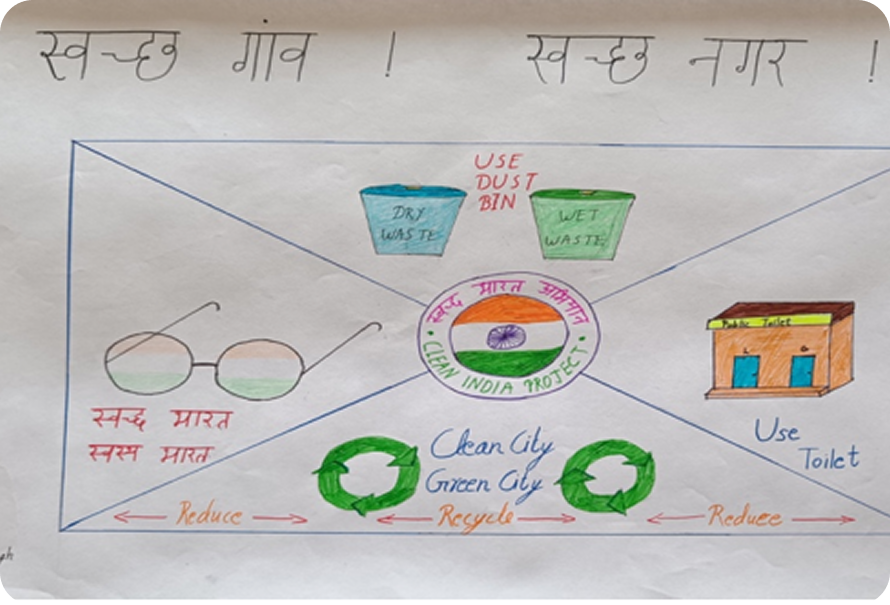 स्वच्छ गांव ! स्वच्छ नगर !
USE
DUST
BIN
DRY
WASTE
WET
WASTE
स्वच्छ भारत अभियान
CLEAN INDIA PROJECT
Public Toilet
L G
स्वच्छ भारत
स्वस्थ भारत
Use
Toilet
Clean City
Green City
Reduce Recycle Reduce